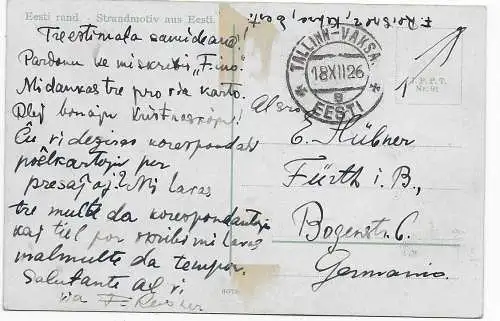 Eesti rand. - Strandmotiv aus Eesti.
Treestimata samideano!
Pardonu ke mi skribis "Fino".
Mi dankas tre pro via karto.
Plej bonajn Kristnaskojn!
Ĉu vi deziras korespondi
poŝtkartojn per
presaĵoj? Mi havas
tre multe da korespondantoj
kaj tiel por skribi mi havas
malmulte da tempo.
Salutante al vi
via F. Reisner
TALLINN-VAKSAL
18 XII 26
B
EESTI
E. Hübner
Fürth i. B.,
Bogenstr. 6.
Germanio.